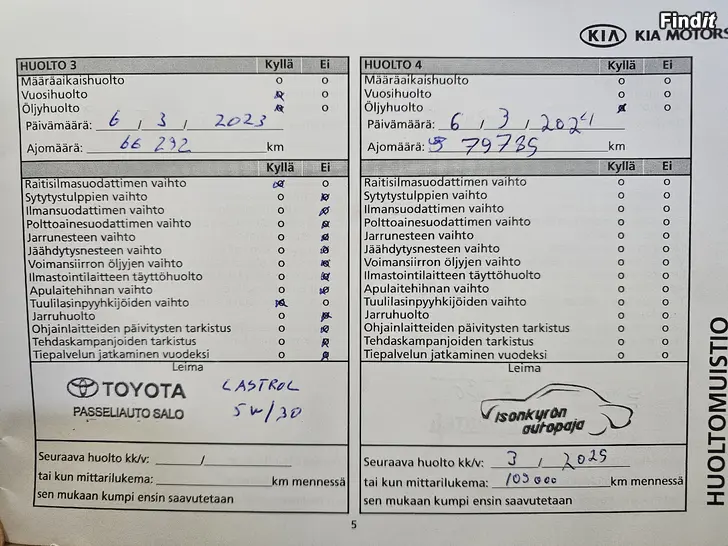 Findit
KIA KIA MOTORS
HUOLTO 3 Kyllä Ei
Määräaikaishuolto o o
Vuosihuolto o
Öljyhuolto o
Päivämäärä: 6 / 3 / 2023
Ajomäärä: 66 292 km
Kyllä Ei
Raitisilmasuodattimen vaihto o
Sytytystulppien vaihto o
Ilmansuodattimen vaihto o
Polttoainesuodattimen vaihto o
Jarrunesteen vaihto o
Jäähdytysnesteen vaihto o
Voimansiirron öljyjen vaihto o
Ilmastointilaitteen täyttöhuolto o
Apulaitehihnan vaihto o
Tuulilasinpyyhkijöiden vaihto o
Jarruhuolto o
Ohjainlaitteiden päivitysten tarkistus o
Tehdaskampanjoiden tarkistus o
Tiepalvelun jatkaminen vuodeksi o
Leima
TOYOTA
PASSELIAUTO SALO
CASTROL
5W/30
Seuraava huolto kk/v: /
tai kun mittarilukema: km mennessä
sen mukaan kumpi ensin saavutetaan
HUOLTO 4 Kyllä Ei
Määräaikaishuolto o o
Vuosihuolto o o
Öljyhuolto o
Päivämäärä: 6 / 3 / 2024
Ajomäärä: 79785 km
Kyllä Ei
Raitisilmasuodattimen vaihto o o
Sytytystulppien vaihto o o
Ilmansuodattimen vaihto o o
Polttoainesuodattimen vaihto o o
Jarrunesteen vaihto o o
Jäähdytysnesteen vaihto o o
Voimansiirron öljyjen vaihto o o
Ilmastointilaitteen täyttöhuolto o o
Apulaitehihnan vaihto o o
Tuulilasinpyyhkijöiden vaihto o o
Jarruhuolto o o
Ohjainlaitteiden päivitysten tarkistus o o
Tehdaskampanjoiden tarkistus o o
Tiepalvelun jatkaminen vuodeksi o o
Leima
Isonkyrön
autopaja
Seuraava huolto kk/v: 3 / 2025
tai kun mittarilukema: 105000 km mennessä
sen mukaan kumpi ensin saavutetaan
HUOLTOMUISTIO
5